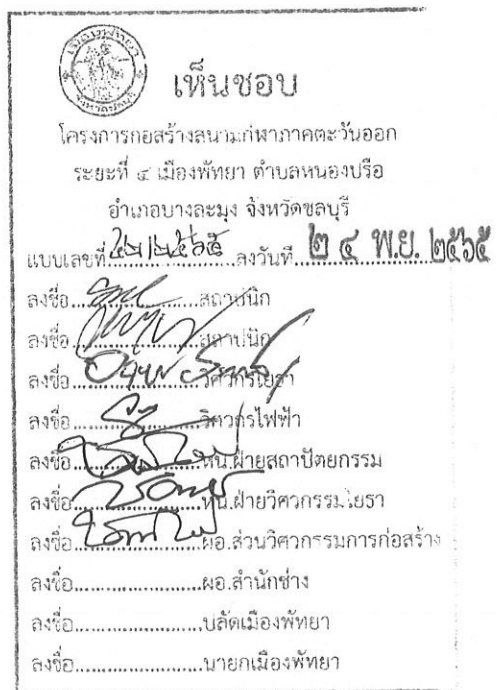 เมืองพัทยา
จังหวัดชลบุรี
เห็นชอบ
โครงการก่อสร้างสนามกีฬาภาคตะวันออก
ระยะที่ ๔ เมืองพัทยา ตำบลหนองปรือ
อำเภอบางละมุง จังหวัดชลบุรี
แบบเลขที่ ๔๒/๒๕๖๕ ลงวันที่ ๒๔ พ.ย. ๒๕๖๕
ลงชื่อ....................สถาปนิก
ลงชื่อ....................สถาปนิก
ลงชื่อ....................วิศวกรโยธา
ลงชื่อ....................วิศวกรไฟฟ้า
ลงชื่อ....................หน.ฝ่ายสถาปัตยกรรม
ลงชื่อ....................หน.ฝ่ายวิศวกรรมโยธา
ลงชื่อ....................ผอ.ส่วนวิศวกรรมการก่อสร้าง
ลงชื่อ....................ผอ.สำนักช่าง
ลงชื่อ....................ปลัดเมืองพัทยา
ลงชื่อ....................นายกเมืองพัทยา